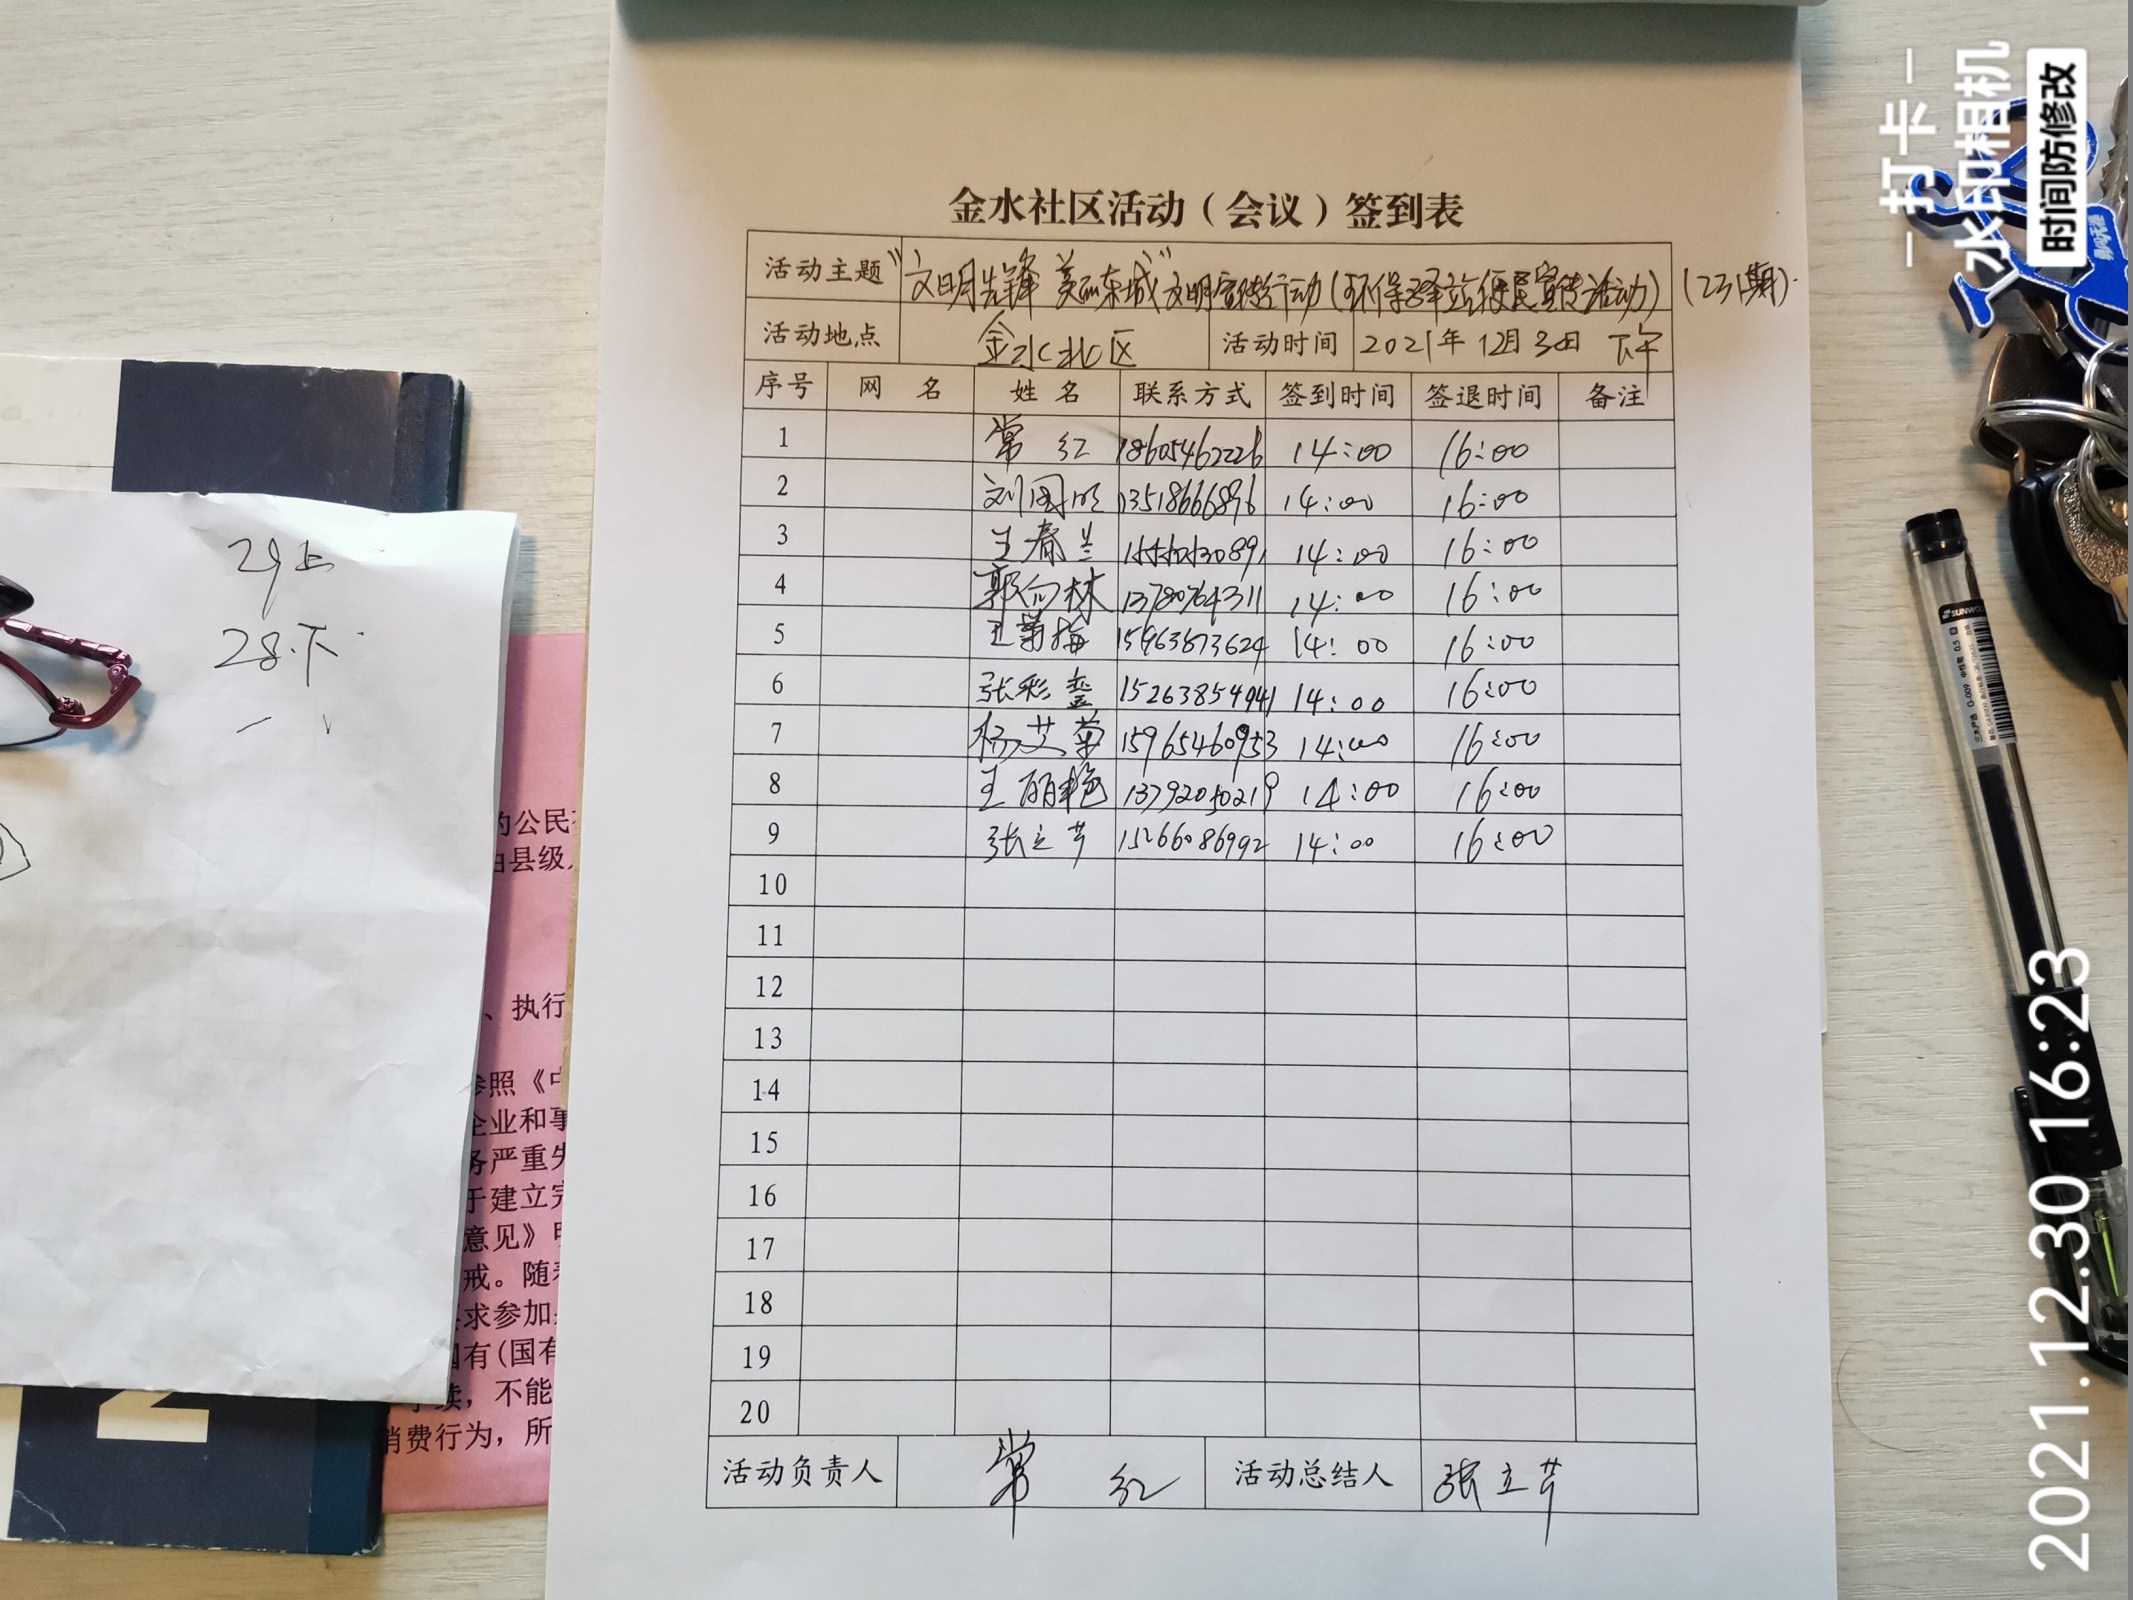 金水社区活动（会议）签到表
活动主题 "文明先锋 美丽东城"文明宣传行动(环保驿站便民宣传活动)(231期)
活动地点 金水北区 活动时间 2021年12月30日 下午
序号 网 名 姓 名 联系方式 签到时间 签退时间 备注
1 常 红 18605462226 14:00 16:00
2 刘国明 13518666896 14:00 16:00
3 王春兰 14:00 16:00
4 郭向林 13780764311 14:00 16:00
5 王菊梅 15963873624 14:00 16:00
6 张彩銮 15263854941 14:00 16:00
7 杨艾菊 15965460953 14:00 16:00
8 王丽艳 13792050219 14:00 16:00
9 张立芹 15266086992 14:00 16:00
10
11
12
13
14
15
16
17
18
19
20
活动负责人 常 红 活动总结人 张立芹
29上
28.下
的公民
县级
、执行
参照《中
企业和事
务严重失
于建立完
意见》
戒。随
求参加
国有(国有
续，不能
消费行为，所
2
SUNWOOD
打卡
水印相机
时间防修改
2021.12.30 16:23